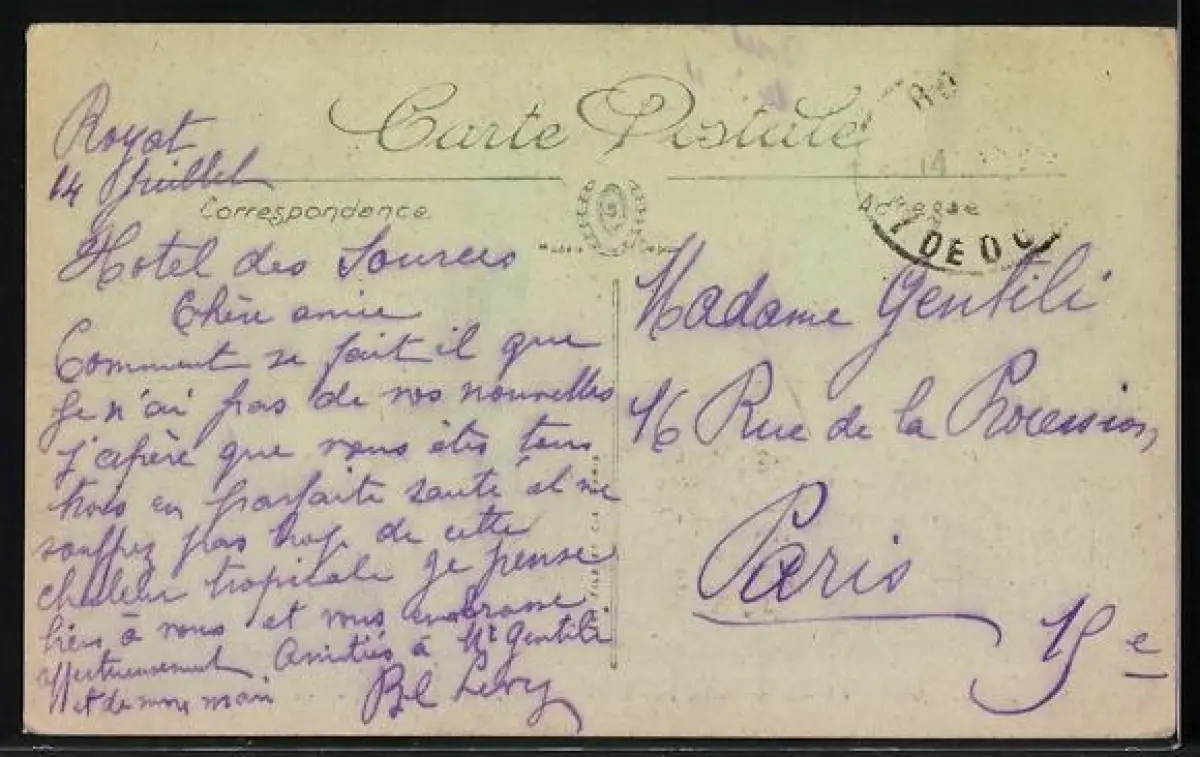 Carte Postale
Correspondance
Adresse
Royat
14 Juillet
Hotel des Sources
Chère amie
Comment se fait il que
je n'ai pas de vos nouvelles
j'espère que vous êtes tous
trois en parfaite santé et ne
souffrez pas trop de cette
chaleur tropicale je pense
bien à vous et vous embrasse
affectueusement Amitiés à Mr Gentili
et de mon mari
Levy
Madame Gentili
16 Rue de la Procession,
Paris
15e
RO
14
DE D